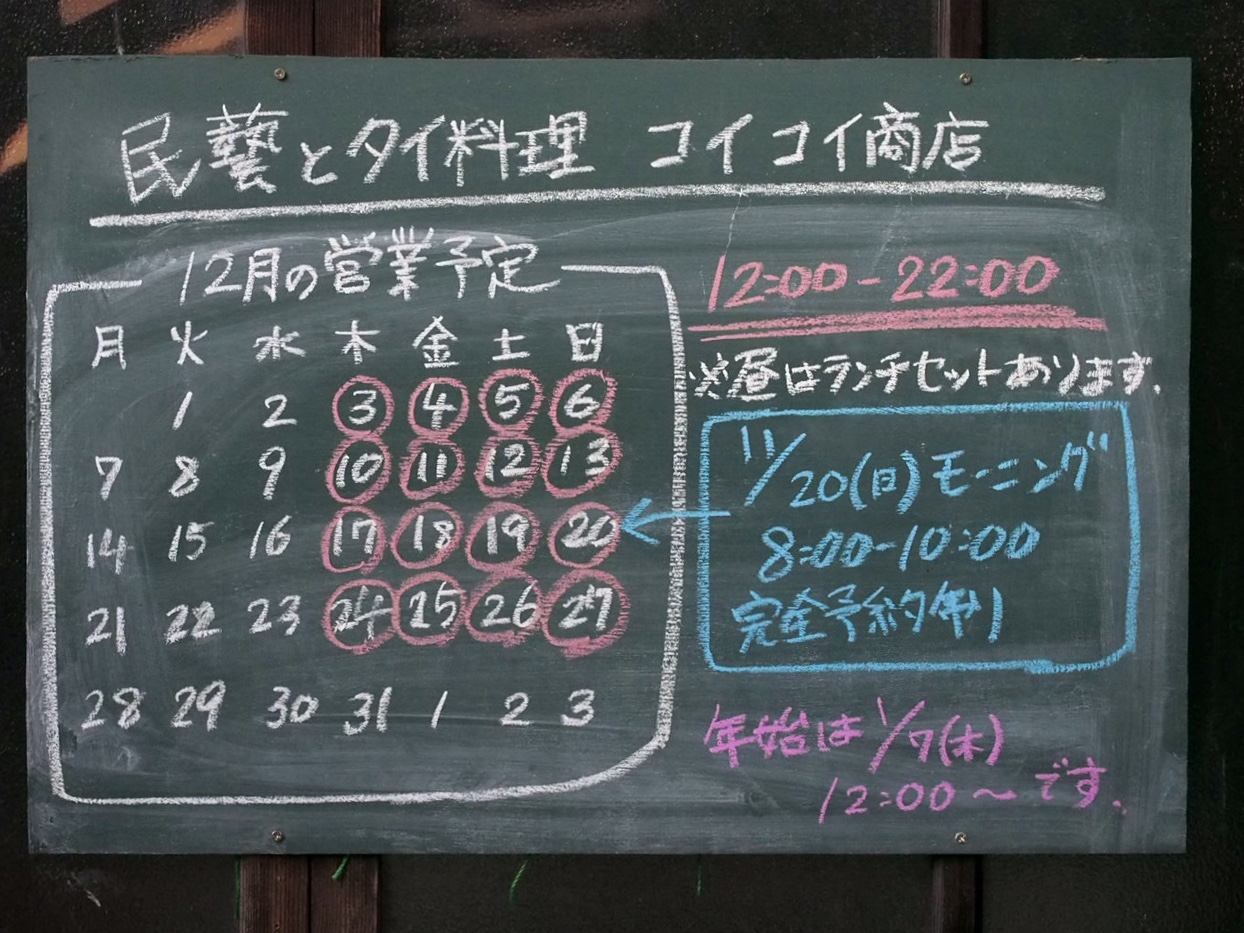 民藝とタイ料理 コイコイ商店
12月の営業予定
月 火 水 木 金 土 日
1 2 3 4 5 6
7 8 9 10 11 12 13
14 15 16 17 18 19 20
21 22 23 24 25 26 27
28 29 30 31 1 2 3
12:00-22:00
※昼はランチセットあります.
11/20(日)モーニング
8:00-10:00
完全予約制
年始は1/7(木)
12:00～です.